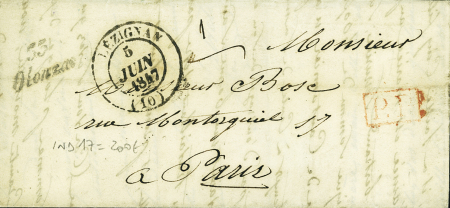 1
Monsieur
33
Olonzac
LÉZIGNAN
5
JUIN
1847
(10)
Monsieur Bosc
rue Montorgueil 17
P.P.
IND 17 = 200€
a Paris